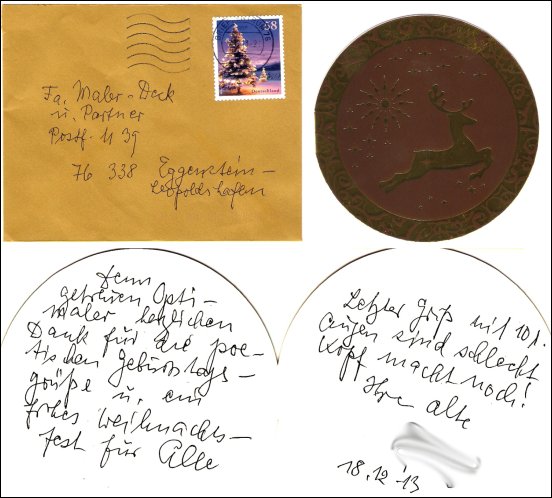 58
Deutschland
Fa. Maler-Deck
u. Partner
Postf. 11 39
76 338 Eggenstein-
Leopoldshafen
Dem
getreuen Opti-
maler herzlichen
Dank für die poe-
tischen Geburtstags-
grüße u. ein
frohes Weihnachts-
fest für Alle
Letzter Gruß mit 101.
Augen sind schlecht
Kopf macht noch!
Ihre alte
18.12.'13